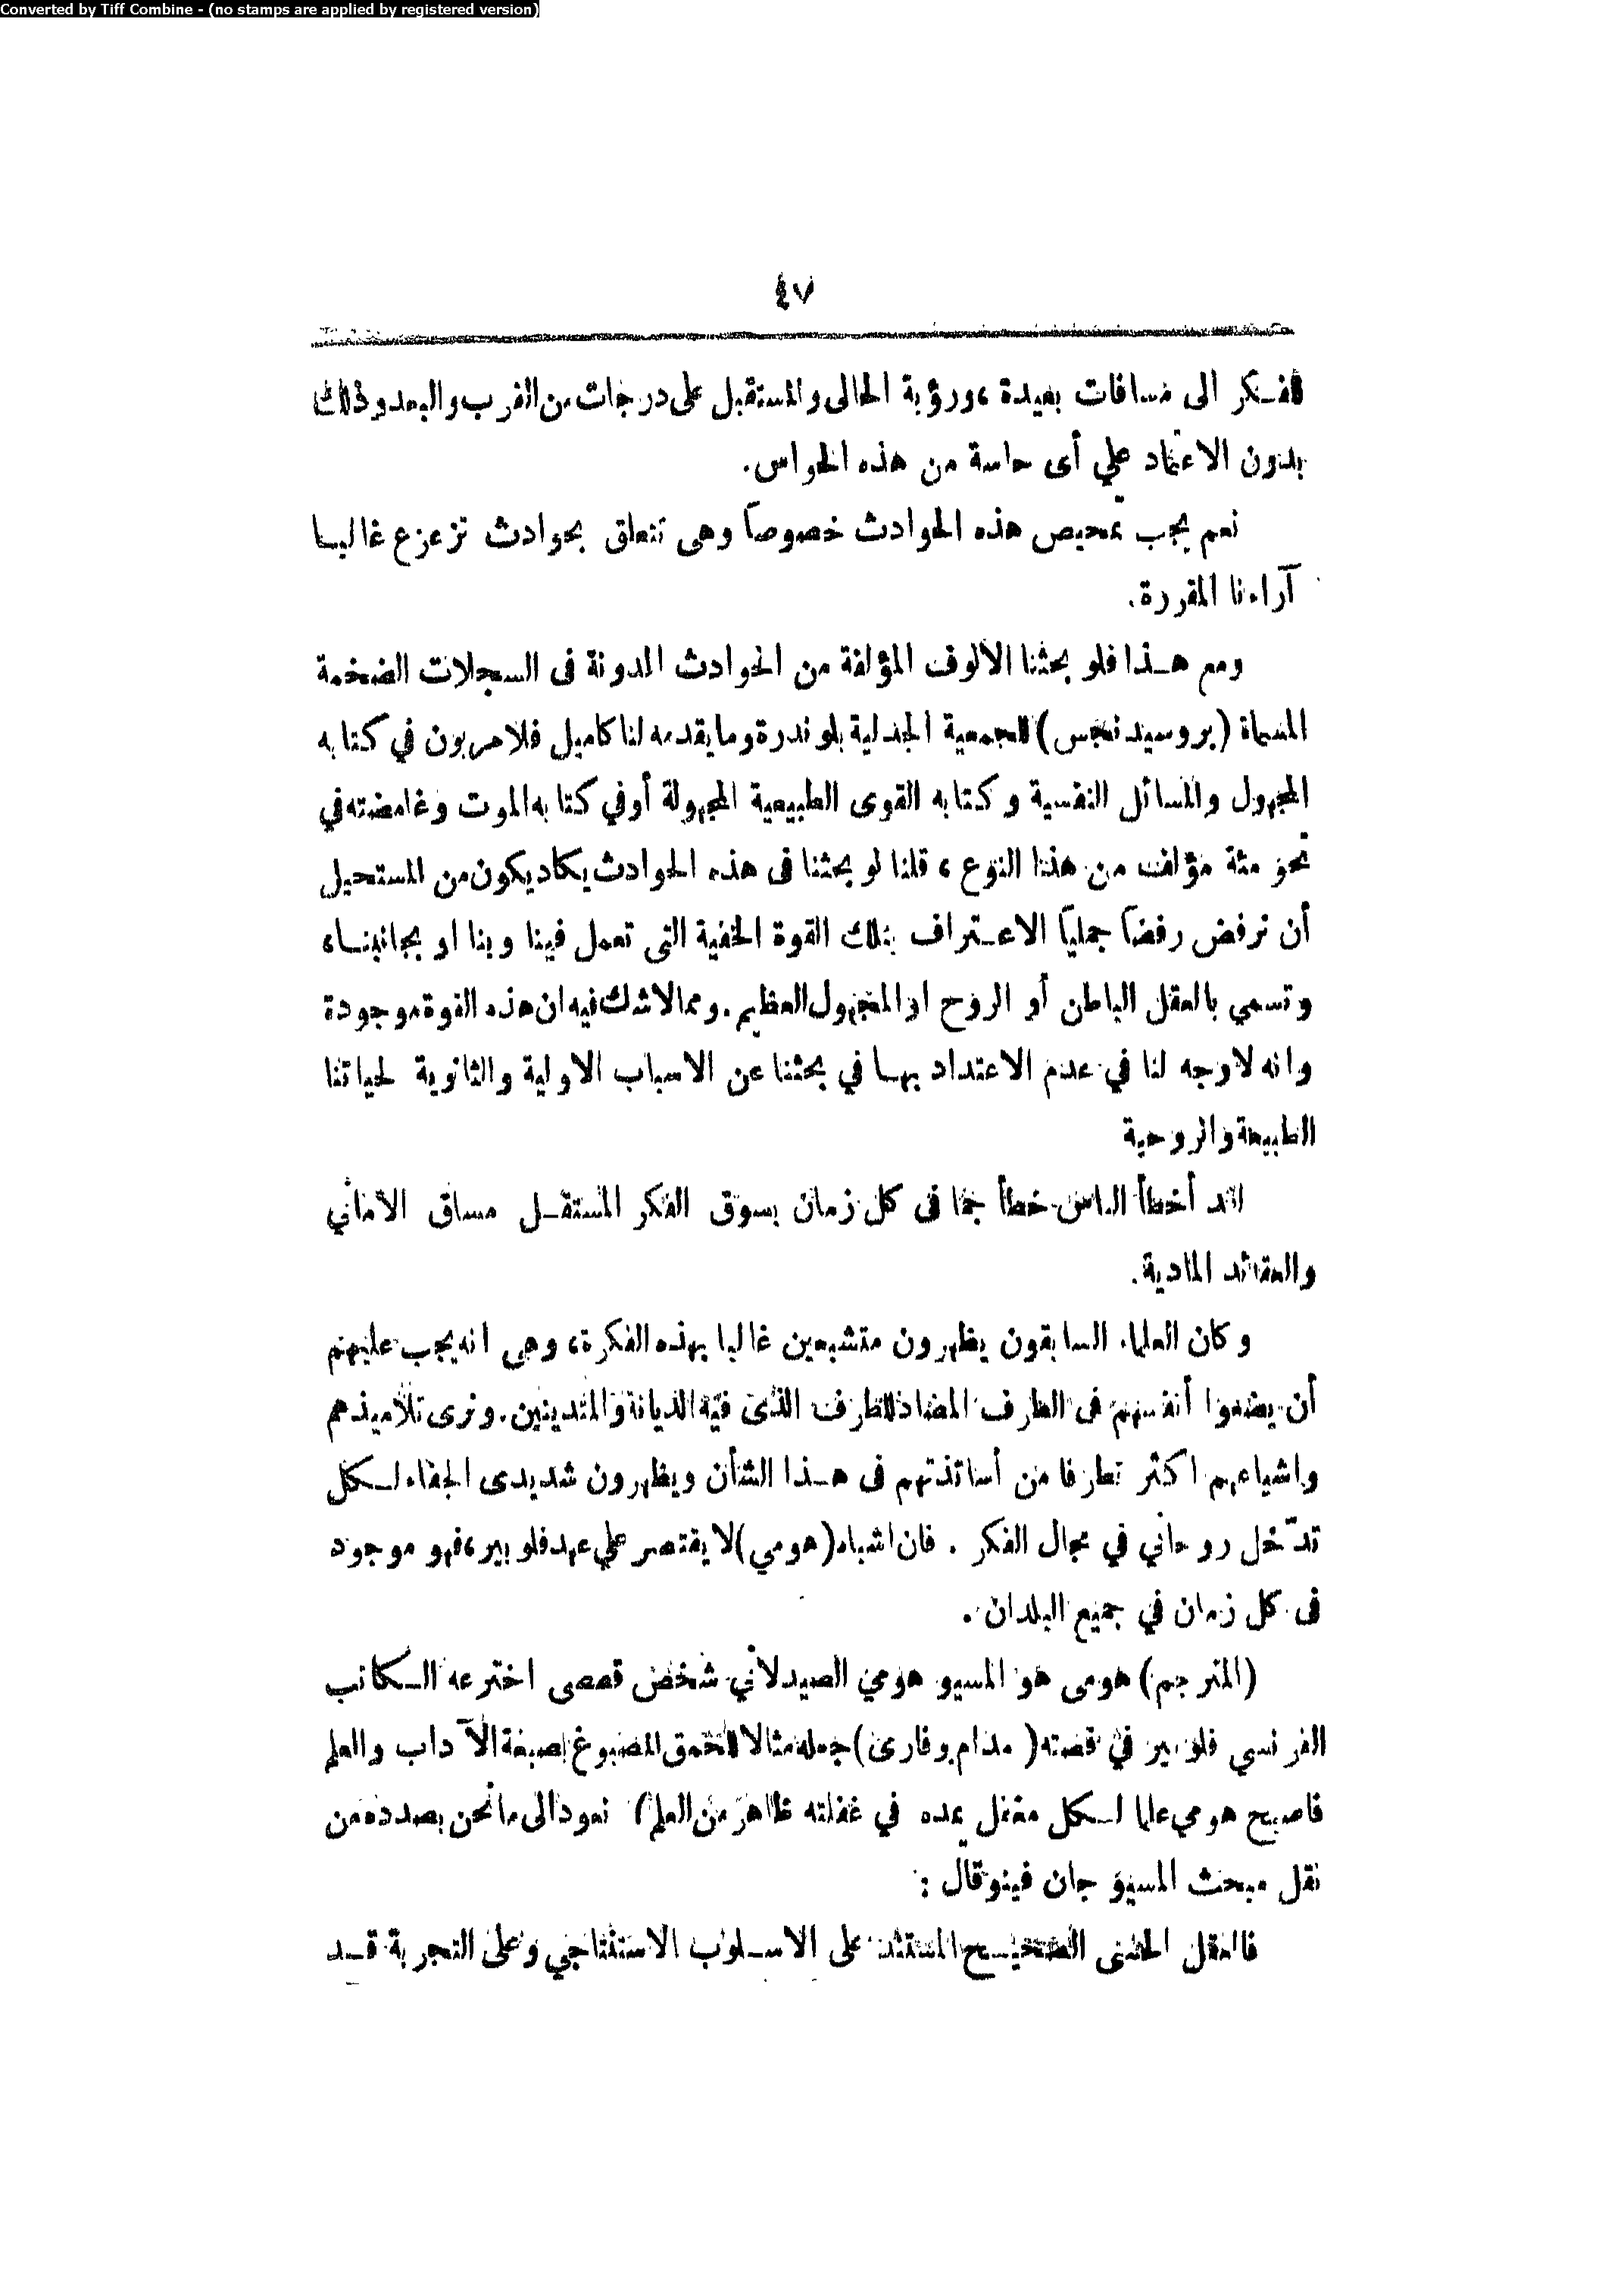 Converted by Tiff Combine - (no stamps are applied by registered version)
٤٧
الفـكر الى مسافات بعيدة ، ورؤية الحالى والمستقبل على درجات من القرب والبعد وذلك
بدون الاعتماد علي أى حاسة من هذه الحواس.
نعم يجب تمحيص هذه الحوادث خصوصاً وهى تتعلق بحوادث تزعزع غالبـا
آراءنا المقررة.
ومع هـذا فلو بحثنا الألوف المؤلفة من الحوادث المدونة فى السجلات الضخمة
المسماة (بروسيدنجس) للجمعية الجدلية بلوندرة وما يقدمه لنا كاميل فلامريون في كتابه
المجهول والمسائل النفسية وكتابه القوى الطبيعية المجهولة أو في كتابه الموت وغامضته في
نحو مئة مؤلف من هذا النوع ، قلنا لو بحثنا فى هذه الحوادث يكاد يكون من المستحيل
أن نرفض رفضاً جملياً الاعـتراف بتلك القوة الخفية التى تعمل فينا وبنا او بجانبنـا،
وتسمي بالعقل الباطن أو الروح او المجهول العظيم . ومما لاشك فيه ان هذه القوة موجودة
وانه لاوجه لنا في عدم الاعتداد بهـا في بحثنا عن الاسباب الاولية والثانوية لحياتنا
الطبيعة والروحية
لقد أخطأ الناس خطأ جما فى كل زمان بسوق الفكر المستقـل مساق الأماني
والعقائد المادية.
وكان العلماء السابقون يظهرون متشبعين غالبا بهذه الفكرة، وهى انه يجب عليهم
أن يضعوا أنفسهم فى الطرف المضاد للطرف الذى فيه الديانة والمتدينين. ونرى تلاميذهم
واشياعهم اكثر تطرفا من أساتذتهم فى هـذا الشأن ويظهرون شديدى الجفاء لـكل
تدّخل روحاني في مجال الفكر . فان اشباه (هومي) لا يقتصر علي عهد فلوبير، فهو موجود
فى كل زمان في جميع البلدان .
(المترجم) هومى هو المسيو هومي الصيدلاني شخص قصصى اخترعه الـكاتب
الفرنسي فلوبير في قصته ( مدام بوفارى) جعله مثالا للحمق المصبوغ بصبغة الآداب والعلم
فاصبح هومي علما لـكل مغفل عنده في غفلته ظاهر من العلم) نعود الى مانحن بصدده من
نقل مبحث المسيو جان فينو قال :
فالعقل الحسى الصحيـح المستند على الاسـلوب الاستنتاجي وعلى التجربة قـد